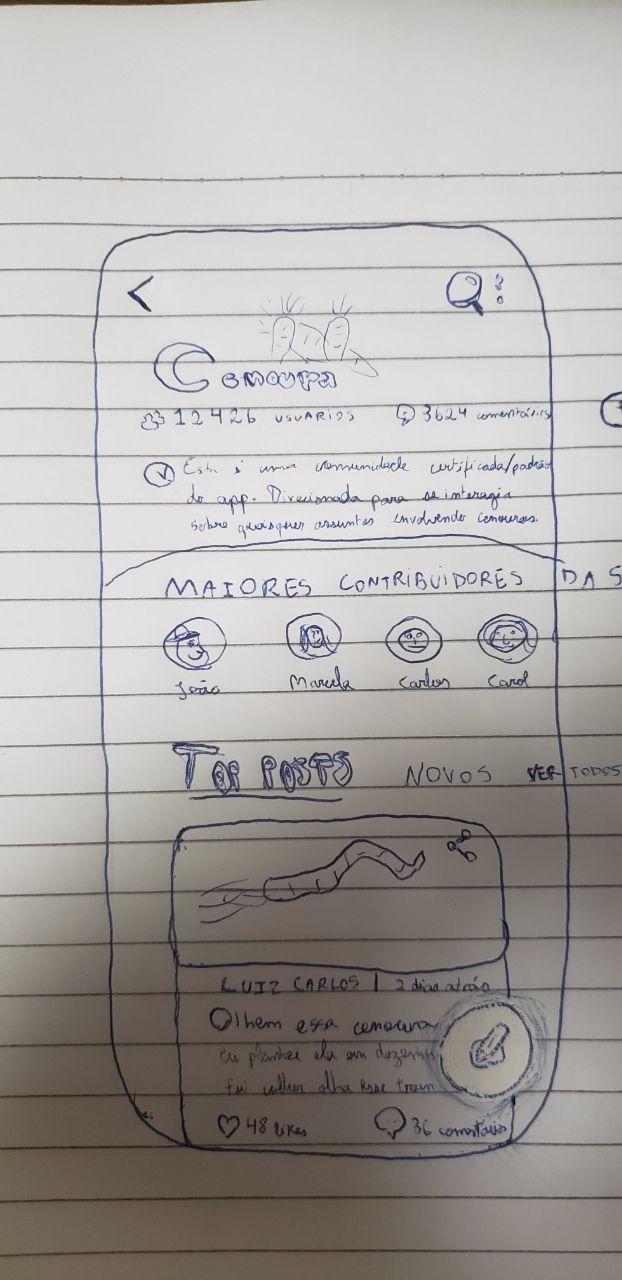 Cenoura
12426 USUARIOS 3624 comentários
Esta é uma comunidade certificada/padrão
do app. Direcionada para se interagir
sobre quaisquer assuntos envolvendo cenouras.
MAIORES CONTRIBUIDORES DA S
João Marcela Carlos Carol
TOP POSTS NOVOS VER TODOS
LUIZ CARLOS | 2 dias atrás
Olhem essa cenoura
eu plantei ela em dezembro
fui colher olha esse trem
48 likes 36 comentários